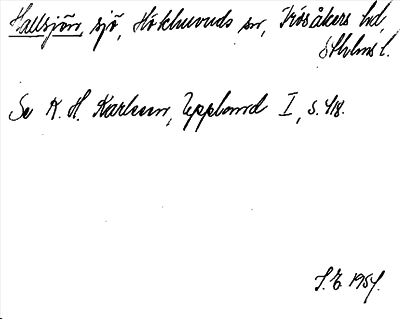 Hallsjön, sjö, Hökhuvuds sn, Frösåkers hd,
Sthlms l.
Se K. H. Karlsson, Uppland I, s. 418.
S.E 1954.